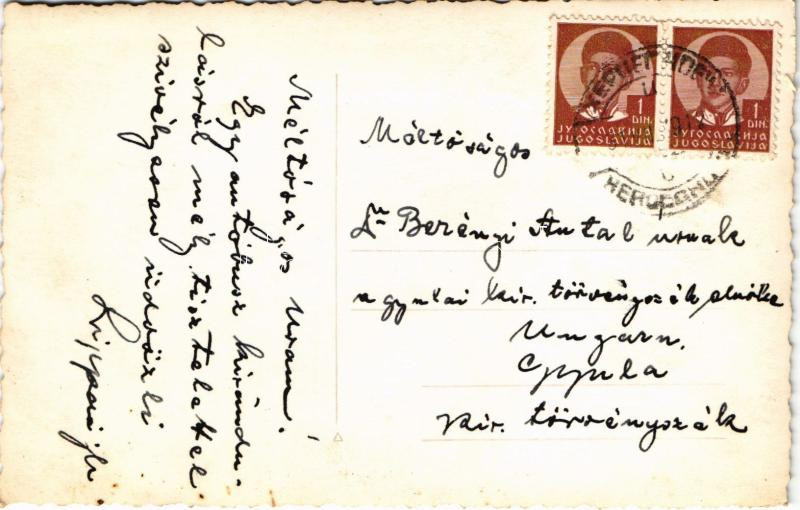 Méltóságos Uram!
Egy autóbusz kirándu-
lásról mély tisztelettel
szivélyesen üdvözli
Méltóságos
Dr Berényi Antal urnak
a gyulai kir. törvényszék elnöke
Ungarn.
Gyula
Kir. törvényszék
1
DIN.
ЈУГОСЛАВИЈА
JUGOSLAVIJA
1
DIN.
ЈУГОСЛАВИЈА
JUGOSLAVIJA
HERCEGNOVI